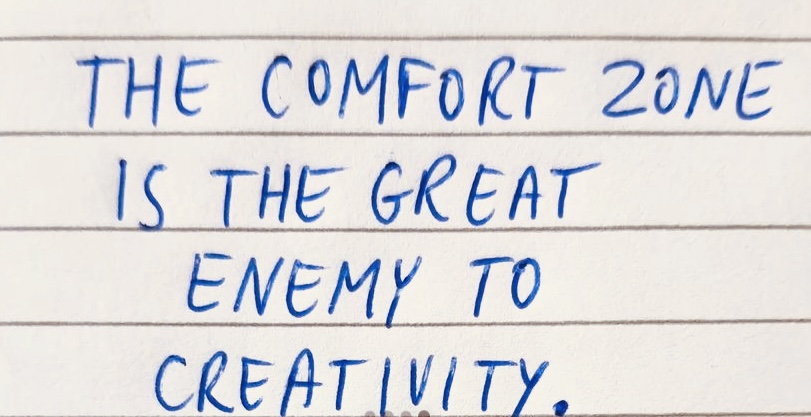 THE COMFORT ZONE
IS THE GREAT
ENEMY TO
CREATIVITY.